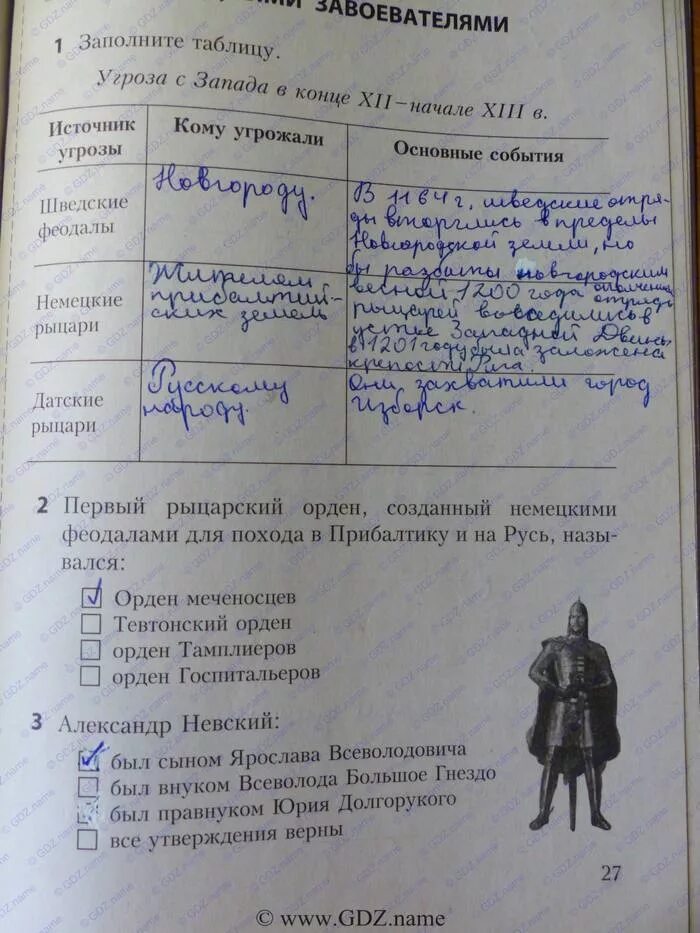 ЗАВОЕВАТЕЛЯМИ
1 Заполните таблицу.
Угроза с Запада в конце XII – начале XIII в.
Источник угрозы
Кому угрожали
Основные события
Шведские
феодалы
Новгороду.
В 1164 г, шведские отря-
ды вторглись в пределы
Новгородской земли, но
бы разбиты новгородским
Немецкие
рыцари
Жителям
прибалтий-
ских земель
весной 1200 года отряды
рыцарей высадились в
устье Западной Двины
в 1201 году была заложена
крепость Рига.
Датские
рыцари
Русскому
народу.
Они захватили город
Изборск.
2 Первый рыцарский орден, созданный немецкими
феодалами для похода в Прибалтику и на Русь, назы-
вался:
Орден меченосцев
Тевтонский орден
орден Тамплиеров
орден Госпитальеров
3 Александр Невский:
был сыном Ярослава Всеволодовича
был внуком Всеволода Большое Гнездо
был правнуком Юрия Долгорукого
все утверждения верны
27
© www.GDZ.name